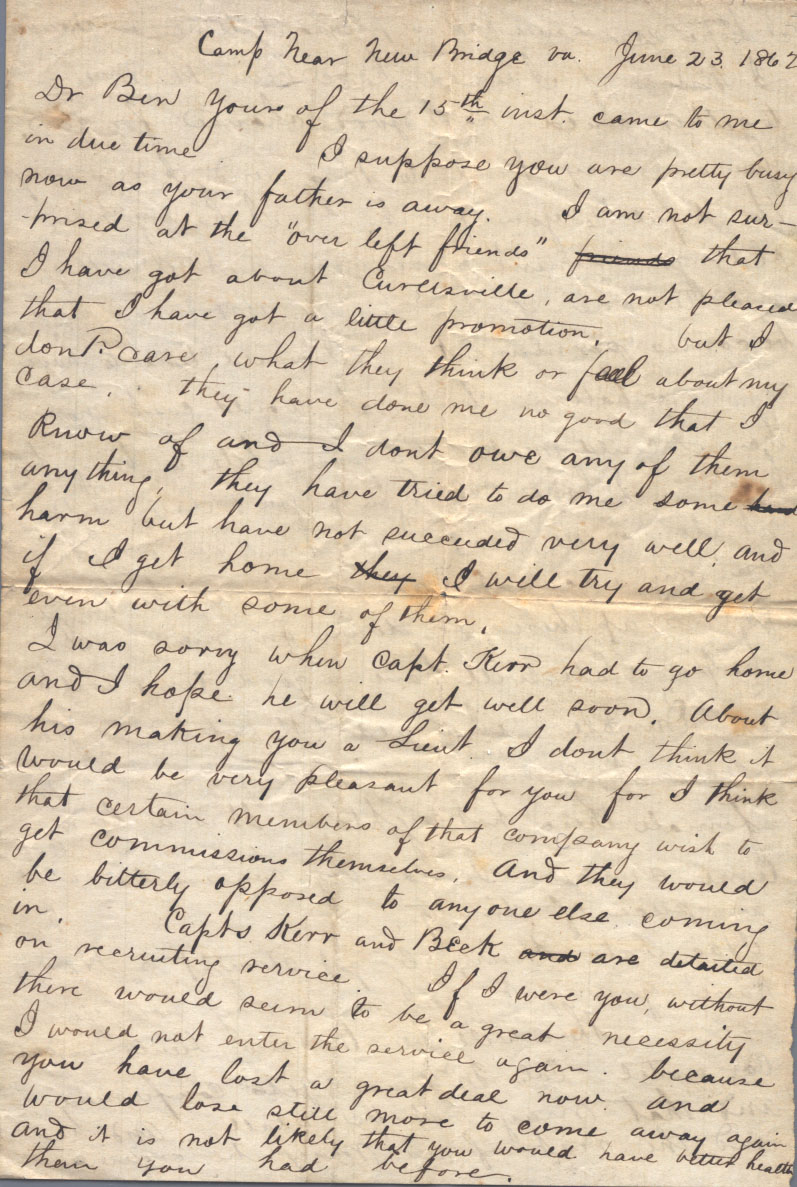 Camp Near New Bridge va. June 23. 1862
Dr Ben yours of the 15th inst. came to me
in due time I suppose you are pretty busy
now as your father is away. I am not sur-
-prised at the "over left friends" friends that
I have got about Curllsville, are not pleased
that I have got a little promotion, but I
dont care what they think or feel about my
case. they have done me no good that I
know of and I dont owe any of them
anything, they have tried to do me some
harm but have not succeeded very well, and
if I get home they I will try and get
even with some of them.
I was sorry when Capt. Kerr had to go home
and I hope he will get well soon. About
his making you a Lieut. I dont think it
would be very pleasant for you for I think
that certain members of that company wish to
get commissions themselves. And they would
be bitterly opposed to anyone else coming
in. Capts Kerr and Beck and are detailed
on recruiting service. If I were you, without
there would seem to be a great necessity
I would not enter the service again. because
you have lost a great deal now and
would lose still more to come away again
and it is not likely that you would have better health
then you had before.